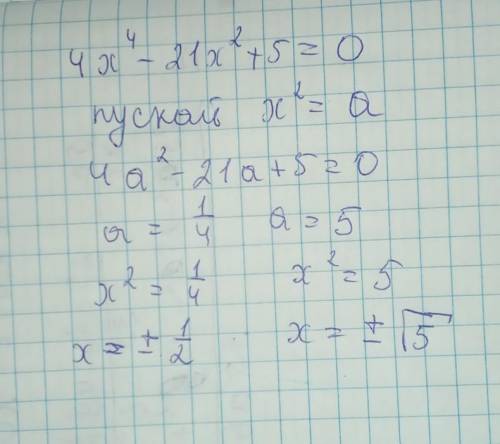 4x⁴ - 21x² + 5 = 0
пускай x² = a
4a² - 21a + 5 = 0
a = 1/4 a = 5
x² = 1/4 x² = 5
x = ± 1/2 x = ± √5